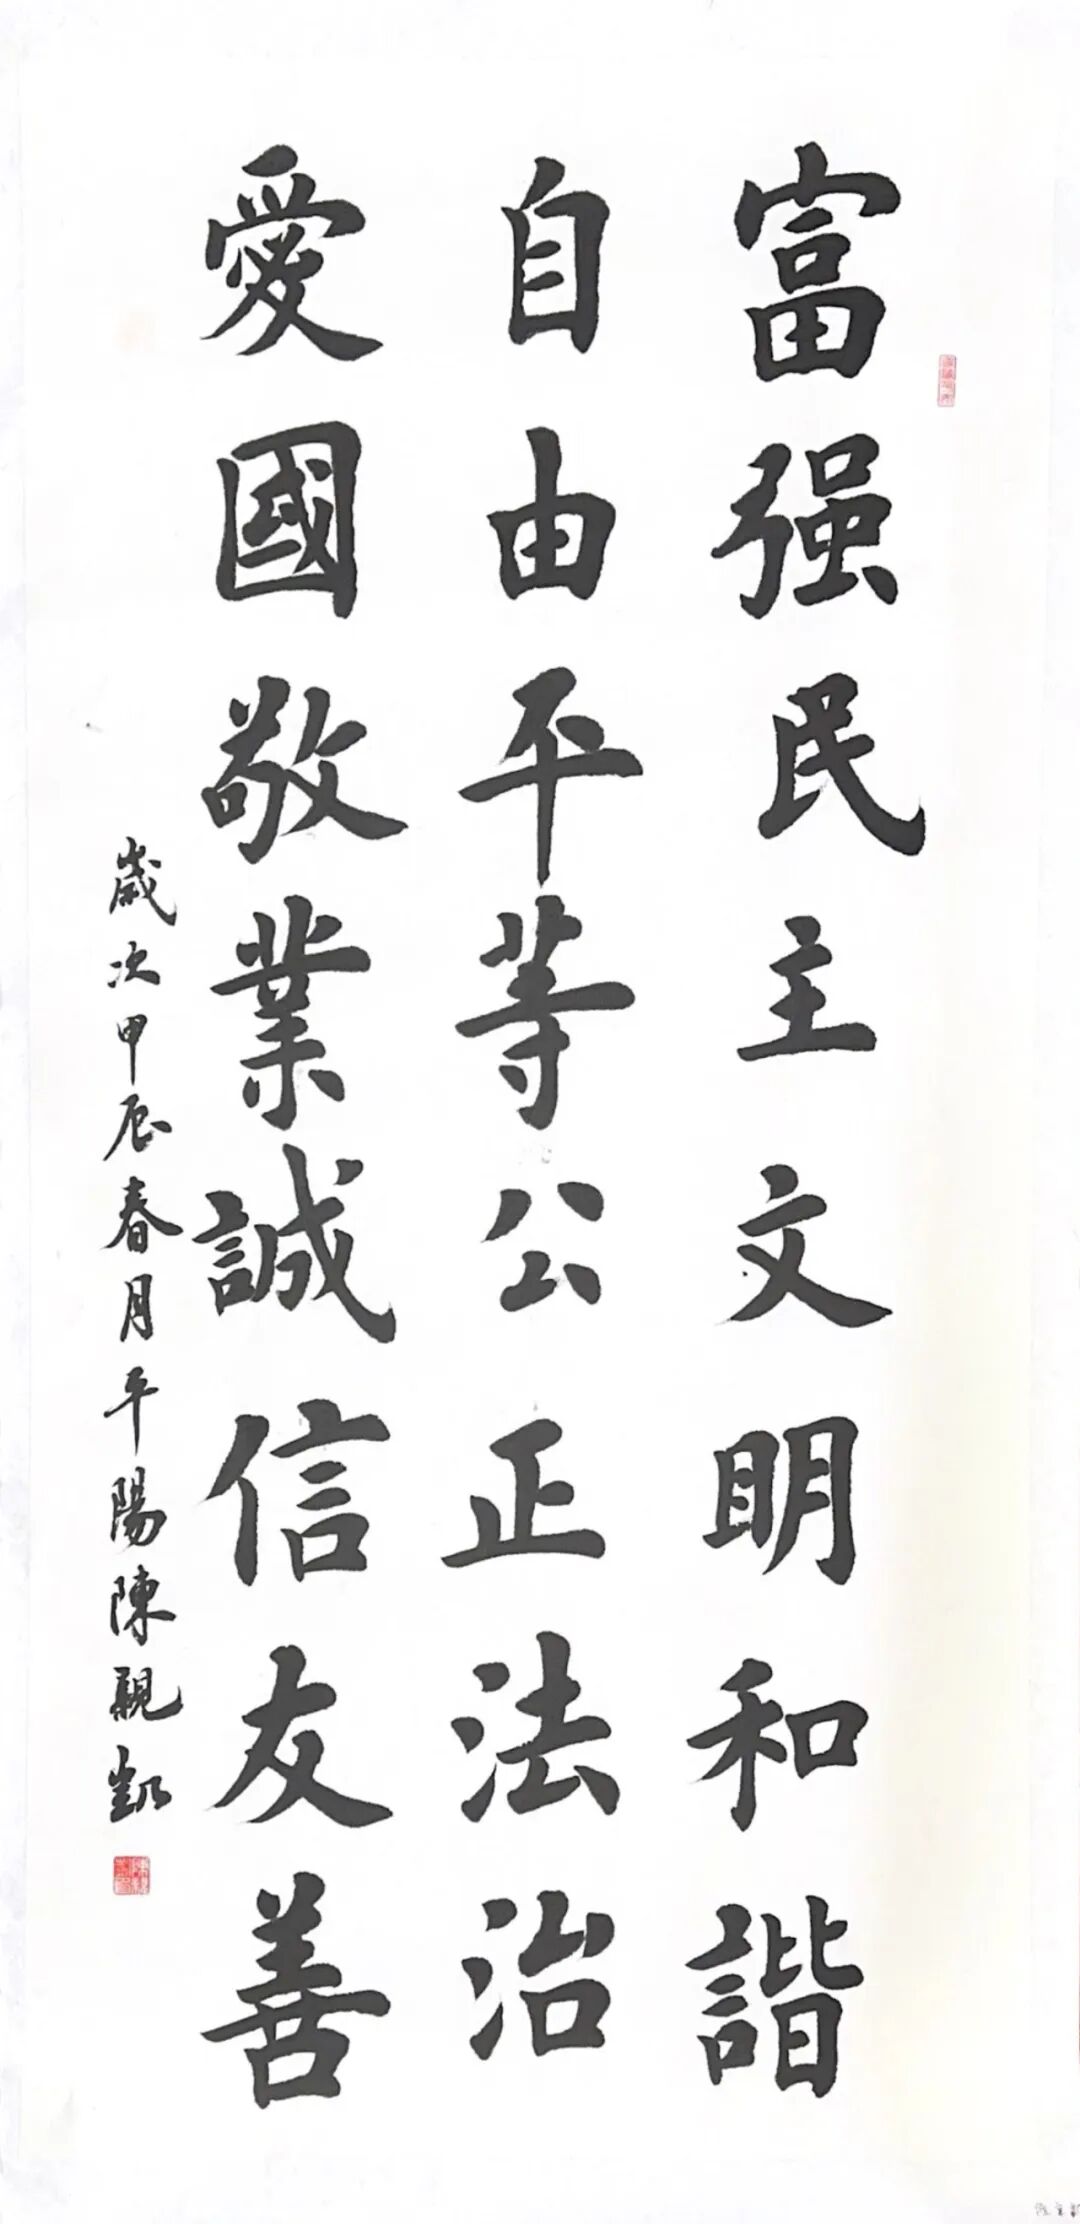 富强民主文明和諧
自由平等公正法治
愛國敬業誠信友善
歲次甲辰春月平陽陳親凱